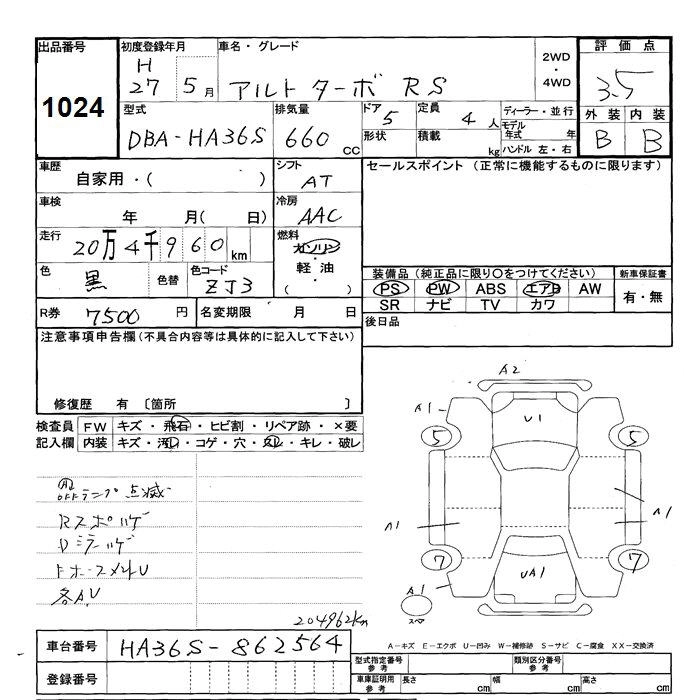 出品番号
1024
初度登録年月
H
27 5月
車名・グレード
アルト ターボ RS
2WD
・
4WD
評価点
3.5
外装 内装
B B
型式
DBA-HA36S
排気量
660 cc
ドア 5
形状
定員 4 人
積載 kg
ディーラー・並行
モデル
年式 年
ハンドル 左・右
車歴
自家用・( )
シフト
AT
セールスポイント (正常に機能するものに限ります)
車検
年 月( 日)
冷房
AAC
走行
20万4千960km
燃料
ガソリン
・
軽油
・
( )
色
黒
色替
色コード
ZJ3
装備品 (純正品に限り〇をつけてください)
PS PW ABS エアB AW
SR ナビ TV カワ
新車保証書
有・無
R券 7500 円
名変期限 月 日
後日品
注意事項申告欄(不具合内容等は具体的に記入して下さい)
修復歴 有 〔箇所 〕
検査員
記入欄
FW キズ・飛石・ヒビ割・リペア跡・×要
内装 キズ・汚レ・コゲ・穴・欠レ・キレ・破レ
OFFランプ点滅
Rスポハゲ
Dミラーハゲ
各AU
204962km
A2
A1
U1
5 5
A1
A1
7 7
UA1
A1
スペア
車台番号
HA36S-862564
登録番号
A-キズ E-エクボ U-凹み W-補修跡 S-サビ C-腐食 XX-交換済
型式指定番号
参考
類別区分番号
参考
車庫証明用
参考
長さ cm 幅 cm 高さ cm